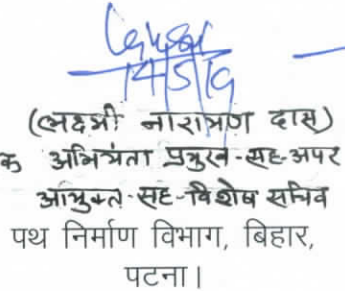 14/5/19
(लक्ष्मी नारायण दास)
क अभियंता प्रमुख-सह-अपर
आयुक्त-सह-विशेष सचिव
पथ निर्माण विभाग, बिहार,
पटना।